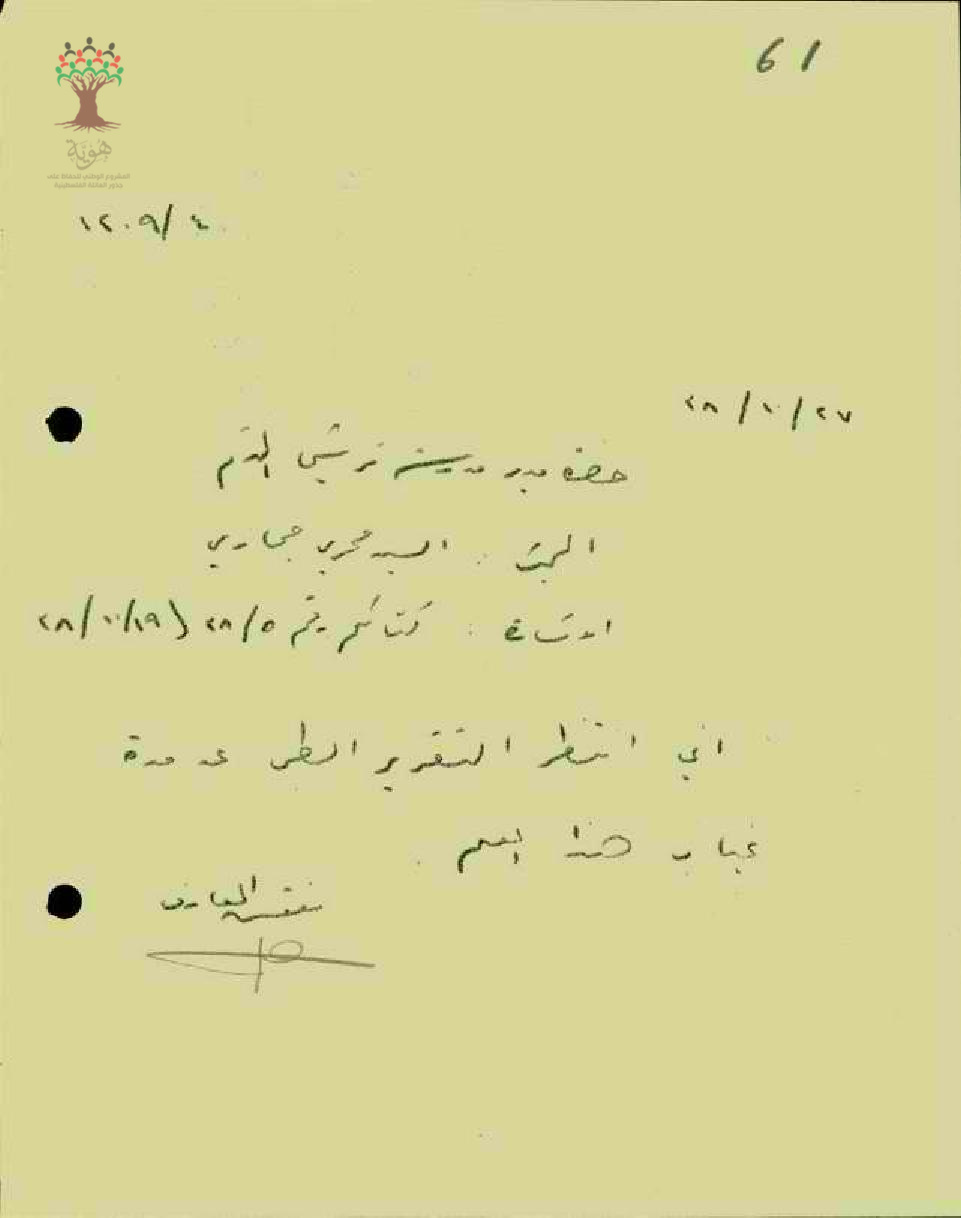 61
هوية
المشروع الوطني للحفاظ على
جذور العائلة الفلسطينية
١٢٠٩/٤
٢٨/١٠/٢٧
حضرة مدير مدرسة ترشيحا المحترم
المبحث : السيد فخري حجازي
الاشارة : كتابكم رقم ٢٨/٥ (٢٨/١٠/١٩
اني انتظر التقرير الطبي عن مدة
غياب هذا المعلم .
مفتش المعارف